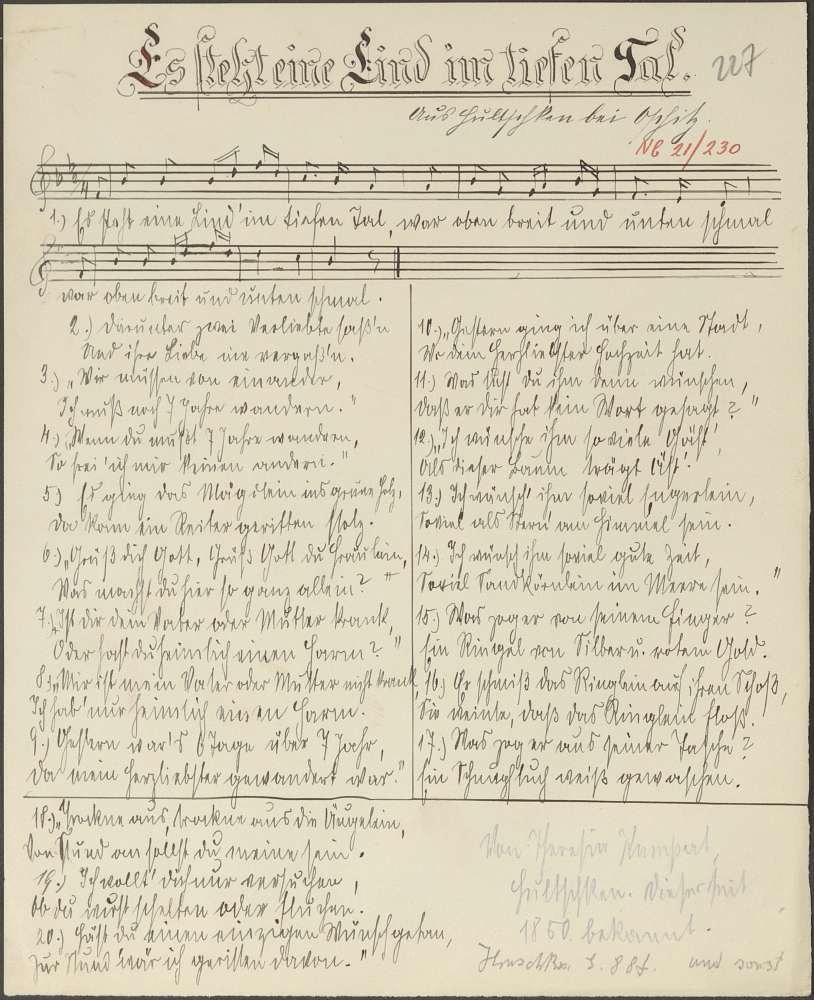 Es steht eine Lind im tiefen Tal.
227
Aus Hultschken bei Oschitz.
NE 21/230
1.) Es steht eine Lind' im tiefen Tal, war oben breit und unten schmal
war oben breit und unten schmal.
2.) Darunter zwei Verliebte saß'n
Und ihre Liebe nie vergaß'n.
3.) „Wir müssen von einander,
Ich muß noch 7 Jahre wandern."
4.) „Wenn du mußt 7 Jahre wandern,
So frei' ich mir keinen andern."
5.) Es ging das Mägdlein ins grüne Holz,
Da kam ein Reiter geritten stolz.
6.) „Grüß dich Gott, Grüß Gott du Fräulein,
Was machst du hier so ganz allein?"
7.) „Ist dir dein Vater oder Mutter krank,
Oder hast du heimlich einen Harm?"
8.) „Mir ist mein Vater oder Mutter nicht krank,
Ich hab' nur heimlich einen Harm.
9.) Gestern war's 6 Tage über 7 Jahr,
Da mein Herzliebster gewandert war."
10.) „Gestern ging ich über eine Stadt,
Wo dein Herzliebster Hochzeit hat.
11.) Was tust du ihm denn wünschen,
Daß er dir hat kein Wort gesagt?"
12.) „Ich wünsche ihm so viele Gäst',
Als dieser Baum trägt Äst'.
13.) Ich wünsch' ihm soviel Engerlein,
Soviel als Stern' am Himmel sein.
14.) Ich wünsch ihm soviel gute Zeit,
Soviel Sandkörnlein im Meere sein."
15.) Was zog er von seinem Finger?
Ein Ringel von Silber u. rotem Gold.
16.) Er schmiß das Ringlein auf ihren Schoß,
Sie weinte, daß das Ringlein floß.
17.) Was zog er aus seiner Tasche?
Ein Schnupftuch weiß gewaschen.
18.) „Trockne aus, trockne aus die Äugelein,
Von Stund an sollst du meine sein.
19.) Ich wollt' dich nur versuchen,
Ob du wirst schelten oder fluchen.
20.) Hätt'st du einen einzigen Wunsch getan,
Zur Stund' wär ich geritten davon."
Von Theresia
Hultschken. Dieser seit
1860 bekannt.
Hruschka S. 88f. und sonst